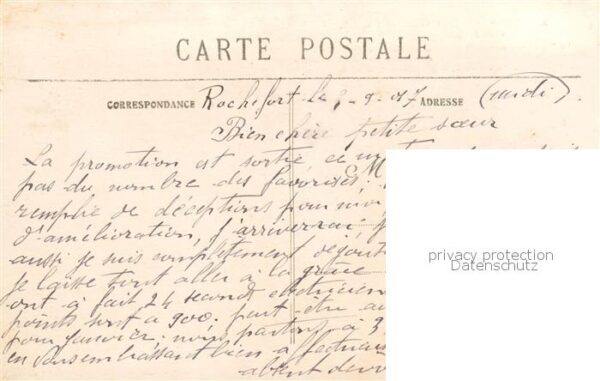 CARTE POSTALE
CORRESPONDANCE Rochefort le 8-9-17 ADRESSE (midi).
Bien chère petite sœur
La promotion est sortie ce
pas du nombre des favorisés.
remplie de déceptions pour moi,
d'amélioration, j'arriverai
aussi je suis complètement
je laisse tout aller à la grâce
ont à fait 24 second
points sont à 900. peut-être au
pour janvier. nous partons à 3
en vous embrassant bien affectueu
privacy protection
Datenschutz